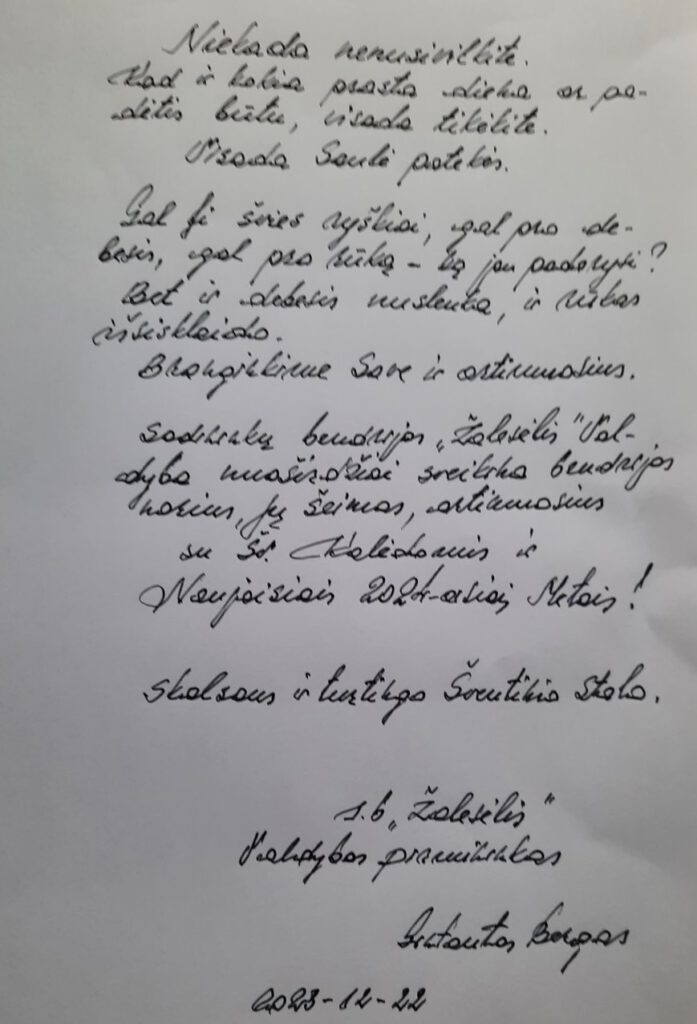 Niekada nenusivilkite.
Kad ir kokia prasta diena ar pa-
dėtis būtu, visada tikėkite.
Visada Saulė patekės.
Gal ji švies ryškiai, gal pro de-
besis, gal pro rūką – ką jau padarysi?
Bet ir debesis nuslenka, ir rūkas
išsisklaido.
Branginkime save ir artimuosius.
Sodininkų bendrijos „Žalesėlis" Val-
dyba nuoširdžiai sveikina bendrijos
narius, jų šeimas, artimuosius
su Šv. Kalėdomis ir
Naujaisiais 2024-aisiais Metais!
Skalsaus ir turtingo Šventinio stalo.
s.b „Žalesėlis"
Valdybos pirmininkas
2023-12-22